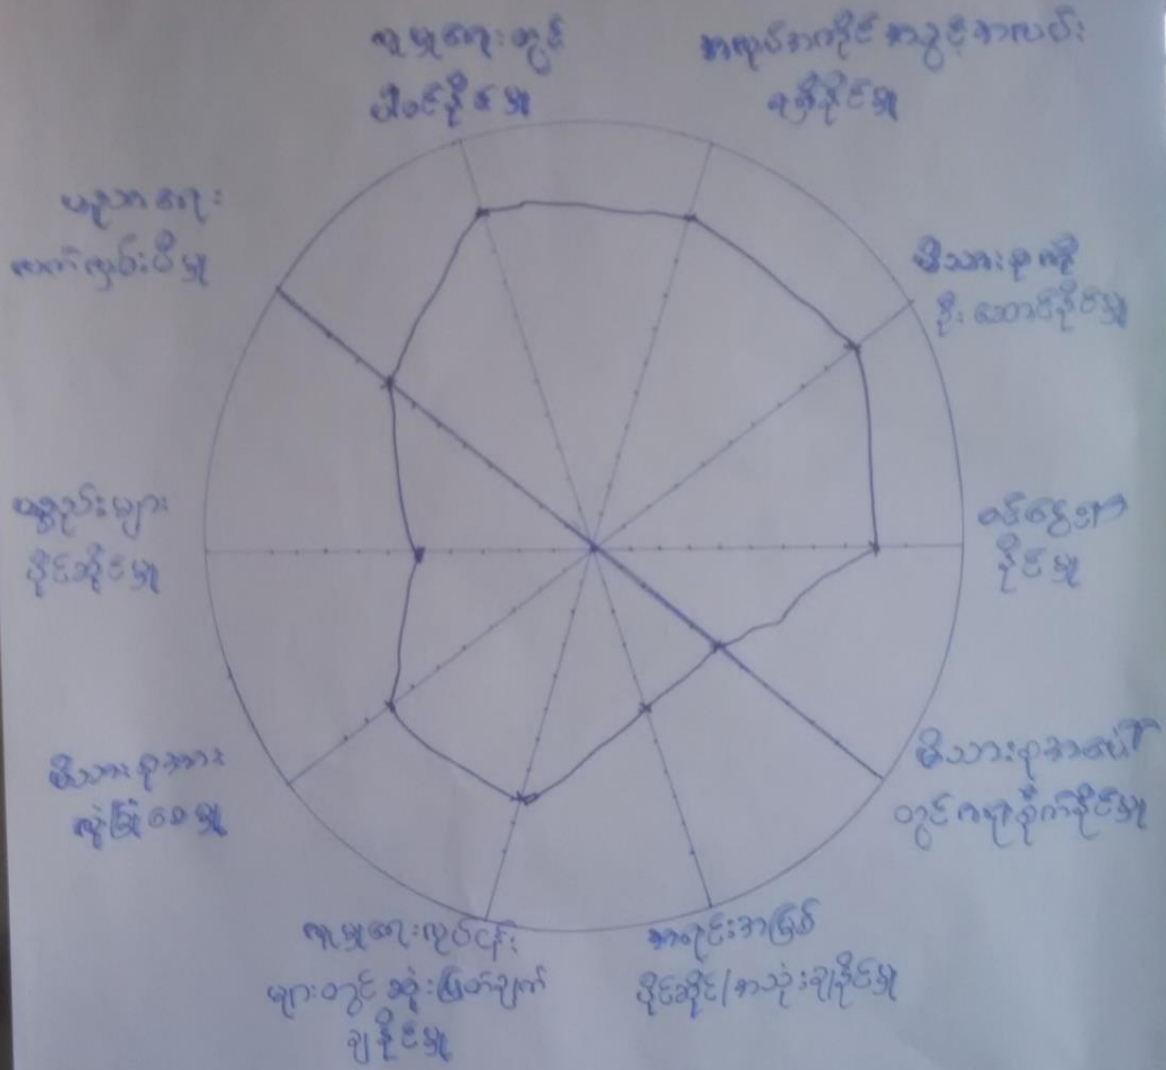 လူမှုရေးတွင်
ပါဝင်နိုင်မှု
အလုပ်အကိုင်အခွင့်အလမ်း
ရရှိနိုင်မှု
မိသားစုကို
ဦးဆောင်နိုင်မှု
ဝင်ငွေရှာ
နိုင်မှု
မိသားစုအပေါ်
တွင်ဂရုစိုက်နိုင်မှု
အရင်းအမြစ်
ပိုင်ဆိုင်/အသုံးချနိုင်မှု
လူမှုရေးလုပ်ငန်း
များတွင်ဆုံးဖြတ်ချက်
ချနိုင်မှု
မိသားစုအား
လုံခြုံစေမှု
ပစ္စည်းများ
ပိုင်ဆိုင်မှု
ပညာရေး
လက်လှမ်းမီမှု